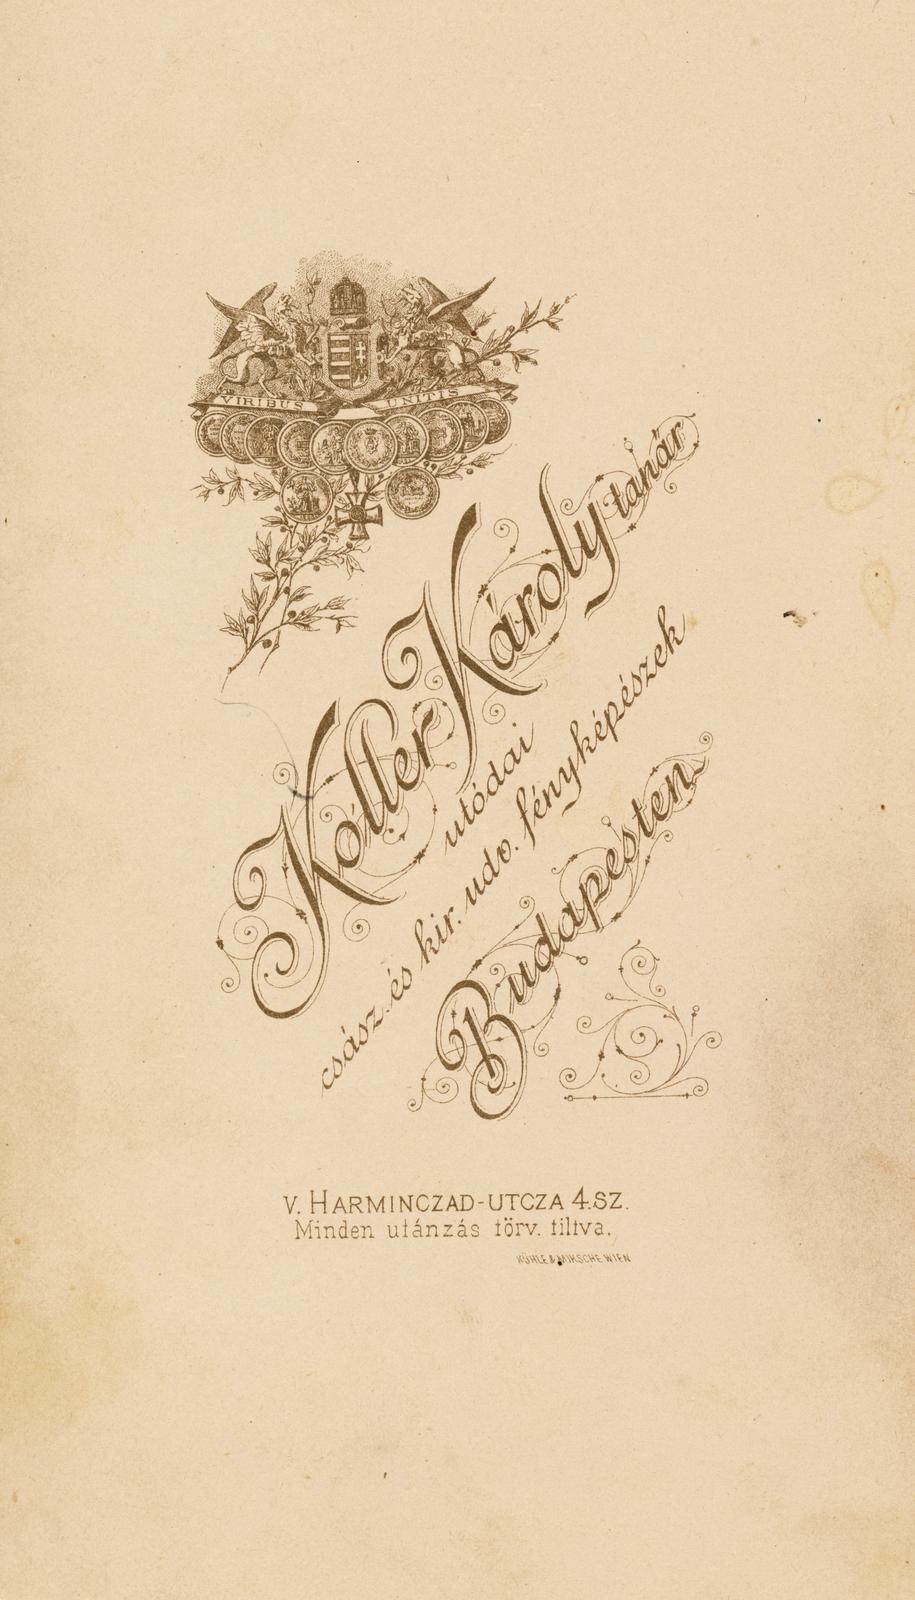 VIRIBUS UNITIS
Koller Károly tanár
utódai
csász. és kir. udv. fényképészek
Budapesten
V. HARMINCZAD-UTCZA 4.SZ.
Minden utánzás törv. tiltva.
KÜHLE & MIKSCHE WIEN